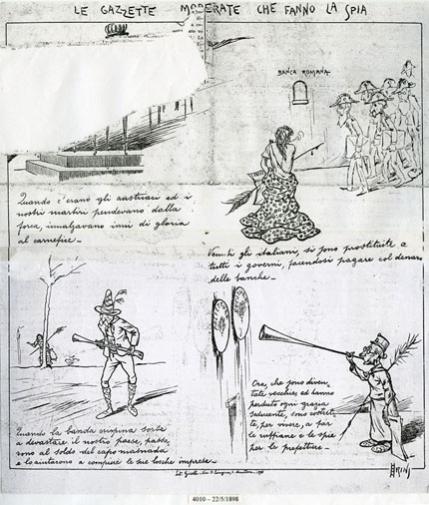 LE GAZZETTE MODERATE CHE FANNO LA SPIA
BANCA ROMANA
Quando c'erano gli austriaci ed i
nostri martiri pendevano dalla
forca, innalzavano inni di gloria
al carnefice_
Venuti gli italiani, si sono prostituite a
tutti i governi, facendosi pagare col denaro
delle banche_
Quando la banda crispina sorse
a devastare il nostro paese, passa,
rono al soldo del capo masnada
e lo aiutarono a compiere le sue losche imprese_
Ora, che sono diven,
tate vecchie, ed hanno
perduto ogni grazia
seducente, sono costret,
te, per vivere, a far
le ruffiane e le spie
per le prefetture_
4010 - 22/5/1898